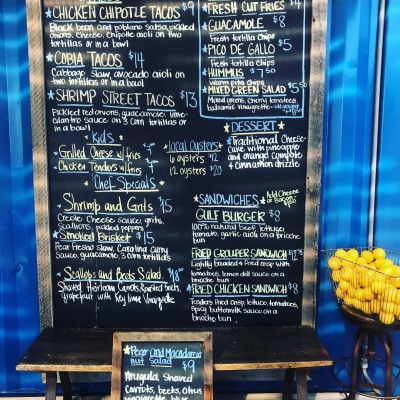 CHICKEN CHIPOTLE TACOS $9
Black bean and poblano salsa, pickled
onions, cheese, chipotle aioli on two
tortillas or in a bowl
COBIA TACOS $14
Cabbage slaw, avocado aioli on
two tortillas or in a bowl
SHRIMP STREET TACOS $13
Pickled red onions, guacamole, lime-
cilantro sauce on 3 corn tortillas or
in a bowl
Kids
Grilled Cheese w/ fries
Chicken Tenders w/ fries
Chef Specials
Shrimp and Grits $15
Creole Cheese sauce, grits,
scallions, pickled peppers
Smoked Brisket $15
Pear Fresno slaw, Carolina Curry
Sauce, guacamole, 3 corn tortillas
Scallops and Beets Salad $18
Shaved Heirloom Carrots, Roasted beets,
grapefruit with Key lime Vinaigrette
FRESH CUT FRIES $4
GUACAMOLE $8
Fresh tortilla chips
PICO DE GALLO $5
Fresh tortilla chips
HUMMUS $7.50
warm pita chips
MIXED GREEN SALAD $5.50
Mixed greens, cherry tomatoes
balsamic vinaigrette
DESSERT
Traditional Cheese-
cake with pineapple
and orange compote
& cinnamon drizzle
local oysters
6 oysters $12
12 oysters $20
SANDWICHES
Add Cheese
or Bacon
GULF BURGER $8
100% natural beef, lettuce,
tomato, garlic aioli on a brioche
bun
FRIED GROUPER SANDWICH
Lightly breaded & fried crisp with
tomatoes, lemon dill sauce on a
brioche bun
FRIED CHICKEN SANDWICH $8
Tenders fried crisp, lettuce, tomatoes,
spicy buttermilk sauce on a
brioche bun
Pear and Macadamia
nut Salad $9
Arugula, Shaved
Carrots, beets, citrus
vinaigrette, blue